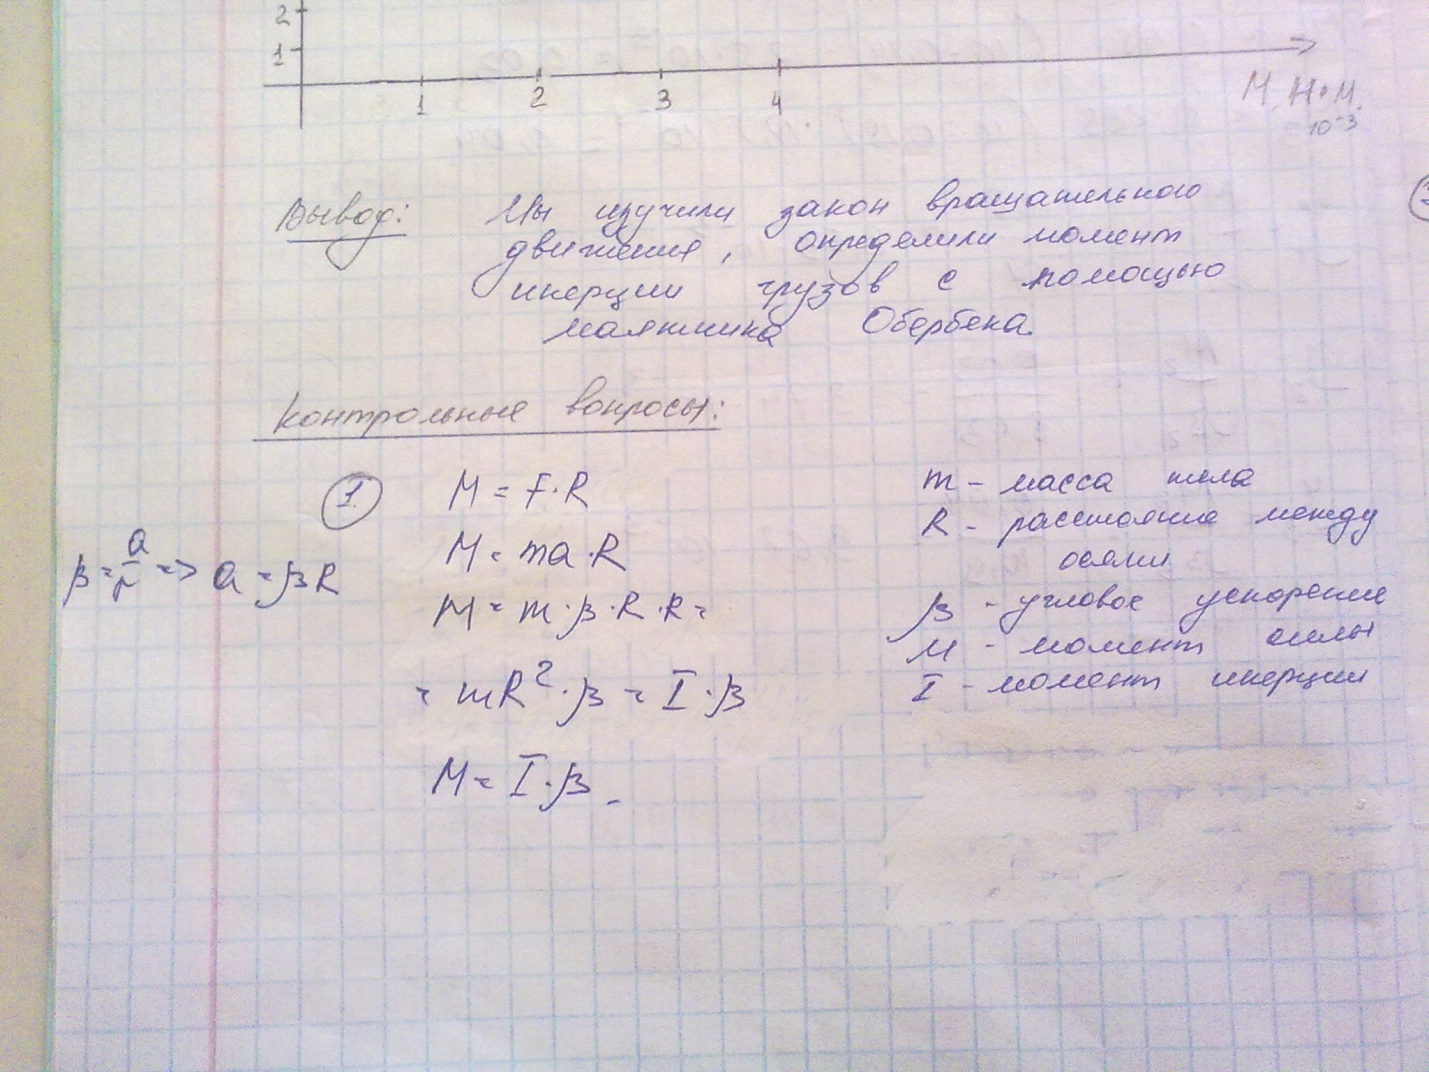 2
1
1 2 3 4
М, Н·м.
10⁻³
Вывод: Мы изучили закон вращательного
движения, определили момент
инерции грузов с помощью
маятника Обербека.
Контрольные вопросы:
1.
M = F·R
M = ma·R
β = a/r => a = βR
M = m·β·R·R =
= mR²·β = I·β
M = I·β
m - масса тела
R - расстояние между
осями
β - угловое ускорение
M - момент силы
I - момент инерции